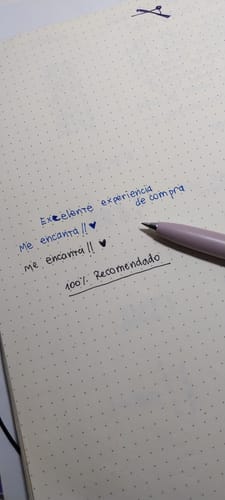 Excelente experiencia
de compra
Me encanta!! ♥
Me encanta!! ♥
100% Recomendado